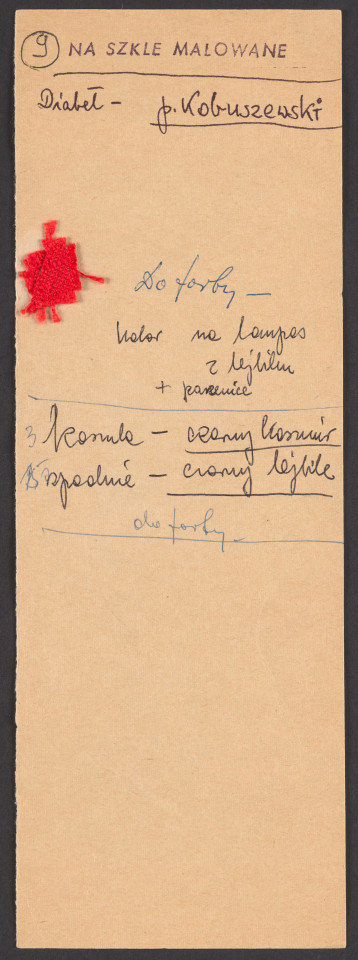 9 NA SZKLE MALOWANE
Diabeł – p. Kobuszewski
Do farby –
kolor na lampas
z lejbilem
+ parzenice
3 koszula – czarny kaszmir
1,5 spodnie – czarny lejbile
do farby –